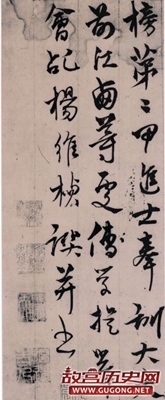 榜第二甲進士奉訓大
前江西等處儒學提舉
會稽楊維楨譔并書
故宫历史网
WWW.GUGONG.NET